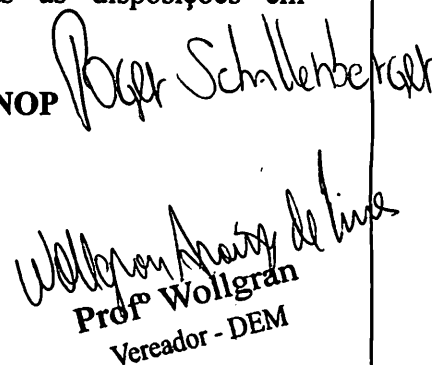 as disposições em
NOP Roger Schallenberger
Wollgran Araújo de Lima
Profº Wollgran
Vereador - DEM